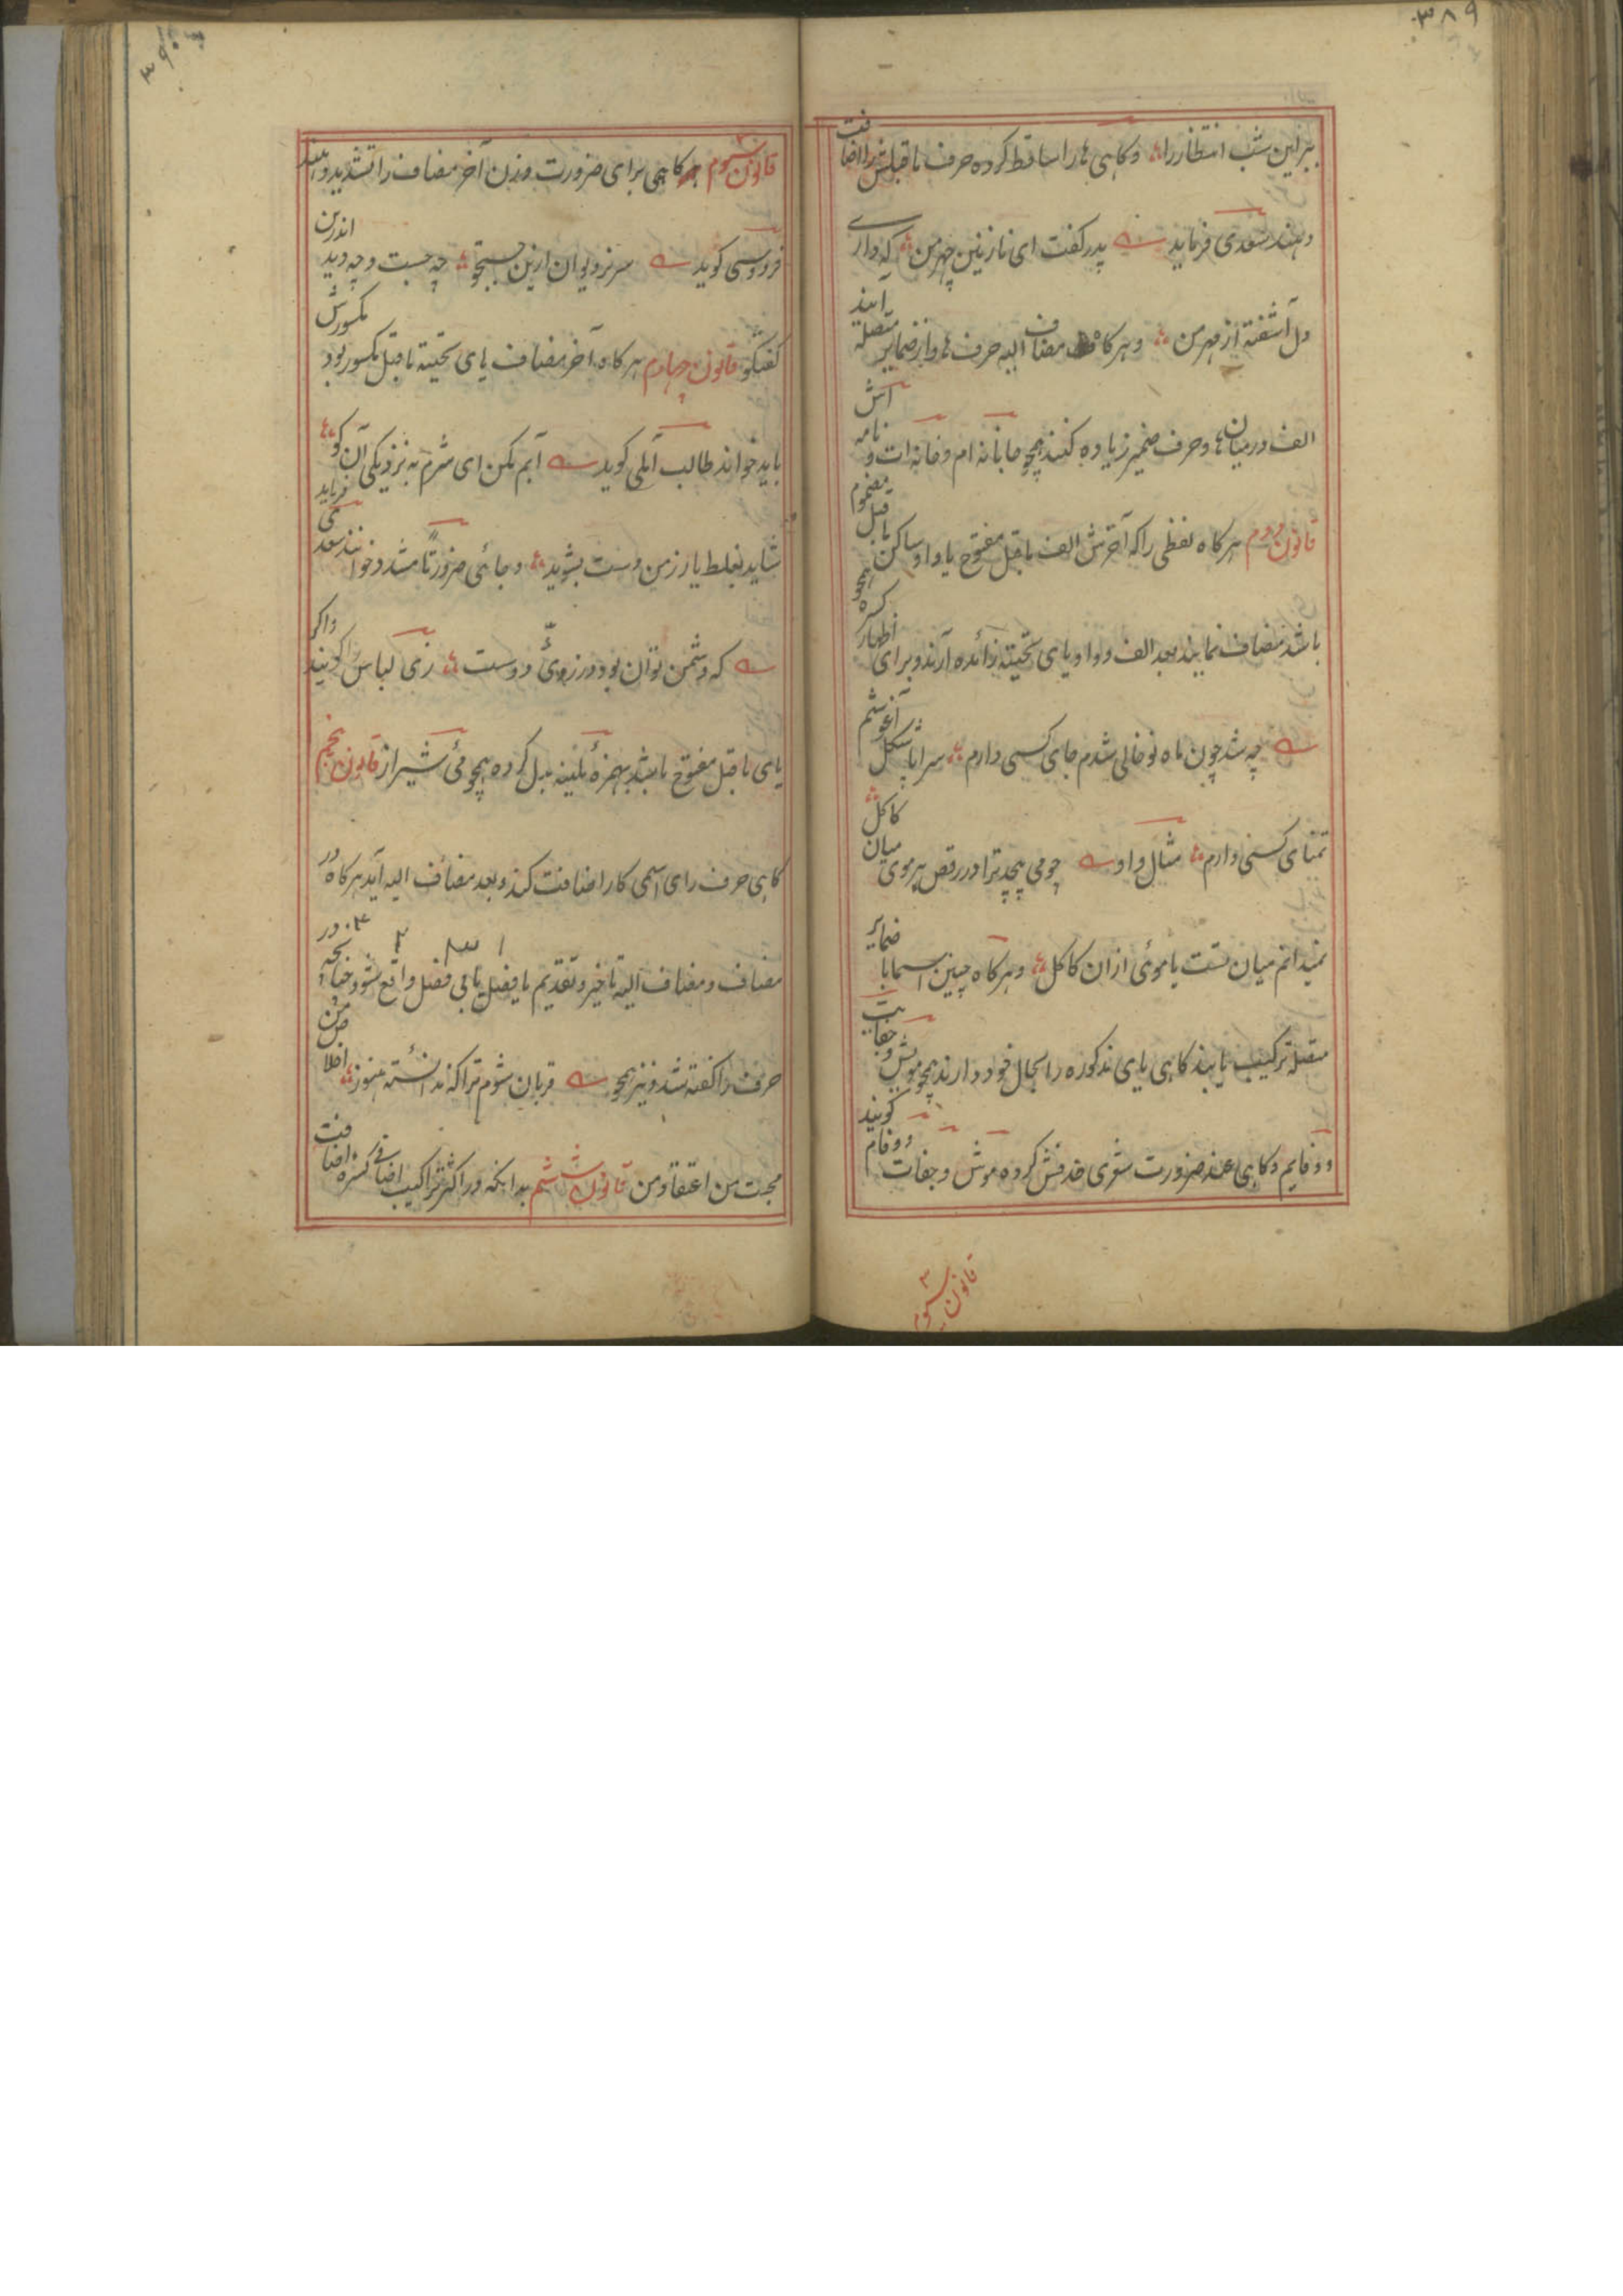 ۳۸۹
ببر این شب انتظار را و کاهی ها را ساقط کرده حرف ماقبلش را اضافت
دهند سعدی فرماید پدر کفت ای نازنین چهر من که داری
دل آشفته از مهر من و هرکاه مضاف الیه حرف ها و از ضمایر متصله آیند
الف در میان ها و حرف ضمیر زیاده کنند همچو جانانه ام و خانه ات و نامه اش
قانون دوم هرکاه لفظی را که آخرش الف ماقبل مفتوح یا واو ساکن ماقبل مضموم
باشد مضاف نمایند بعد الف و واو یای تحتیته زائده آرند و برای اظهار کسره همچو
چه شد چون ماه نو خالی شدم جای کسی دارم سراپا شکل آغوشم
تمنای کسی دارم مثال واو چو می پیچد ترا در رقص بر موی میان کاکل
نمیدانم میان تست یا موئی از ان کاکل و هرکاه چنین اسما با ضمایر
متصله ترکیب یابند کاهی یای مذکوره را بحال خود دارند همچو مویش و جفایت
و وفایم و کاهی عند ضرورت شعری حذفش کرده موش و جفات و وفام کویند
قانون سوم
۳۹۰
قانون سوم کاهی برای ضرورت وزن آخر مضاف را تشدید دهند
فردوسی کوید سر نره دیوان ازین جستجو چه جست و چه دید اندرین
کفتکو قانون چهارم هرکاه آخر مضاف یای تحتیته ماقبل مکسور بود مکسورش
باید خواند طالب آملی کوید آبم مکن ای شرم به نزدیکی آن کو
شاید بغلط یار ز من دست بشوید و جائی ضرورتا مشدد خوانند سعدی فرماید
که دشمن توان بود در زی دوست زی لباس کویند و اکر
یای ماقبل مفتوح باشد بهمزه ملینه بدل کرده همچو مئ شیراز قانون پنجم
کاهی حرف رای اسمی کار اضافت کند و بعد مضاف الیه آید هرکاه در
مضاف و مضاف الیه تاخیر و تقدیم با فصل یا بی فصل واقع شود چنانچه در
حرف را کفته شد و نیز همچو قربان شوم ترا که ندانسته هنوز اخلاص من
محبت من اعتقاد من قانون ششم بدانکه در اکثر تراکیب اضافی کسره اضافت